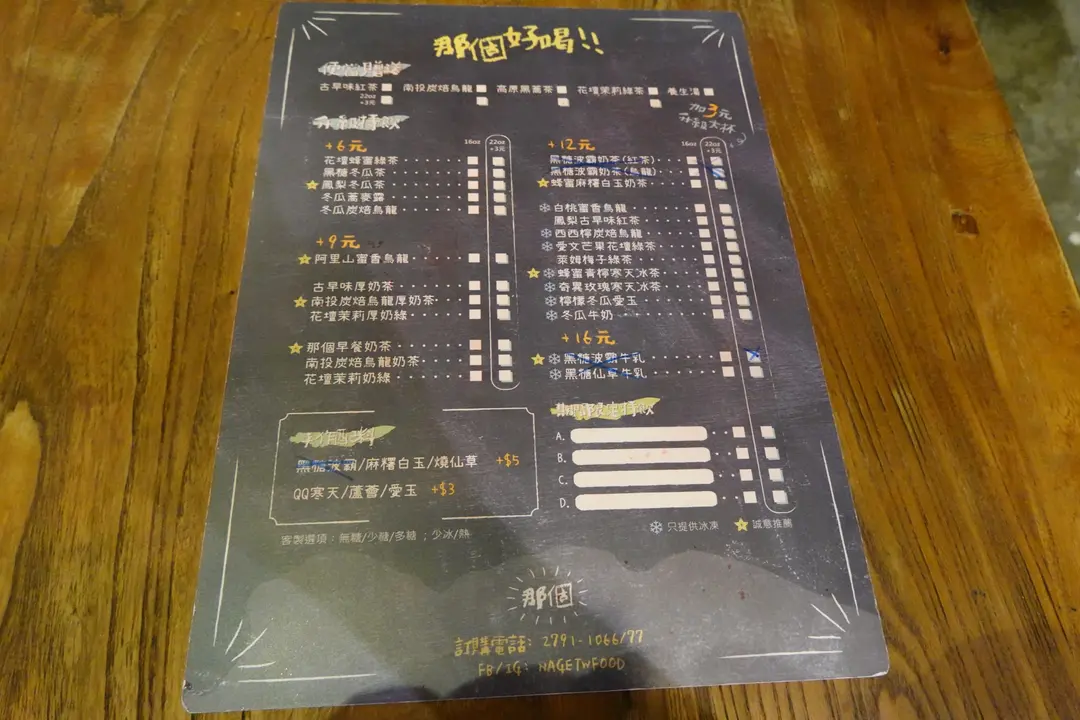 那個好喝!!
便當贈送
古早味紅茶 南投炭焙烏龍 高原黑蕎茶 花壇茉莉綠茶 養生湯
22oz
+3元
加3元
升級大杯
升級特飲
+6元 16oz 22oz +3元
花壇蜂蜜綠茶
黑糖冬瓜茶
鳳梨冬瓜茶
冬瓜蕎麥露
冬瓜炭焙烏龍
+9元
阿里山蜜香烏龍
古早味厚奶茶
南投炭焙烏龍厚奶茶
花壇茉莉厚奶綠
那個早餐奶茶
南投炭焙烏龍奶茶
花壇茉莉奶綠
+12元 16oz 22oz +3元
黑糖波霸奶茶(紅茶)
黑糖波霸奶茶(烏龍)
蜂蜜麻糬白玉奶茶
白桃蜜香烏龍
鳳梨古早味紅茶
西西檸炭焙烏龍
愛文芒果花壇綠茶
萊姆梅子綠茶
蜂蜜青檸寒天冰茶
奇異玫瑰寒天冰茶
檸檬冬瓜愛玉
冬瓜牛奶
+16元
黑糖波霸牛乳
黑糖仙草牛乳
期間限定特飲
A.
B.
C.
D.
只提供冰凍 誠意推薦
加配料
黑糖波霸/麻糬白玉/燒仙草 +$5
QQ寒天/蘆薈/愛玉 +$3
客製選項：無糖/少糖/多糖 ；少冰/熱
那個
訂購電話: 2791-1066/77
FB/IG: NAGETWFOOD